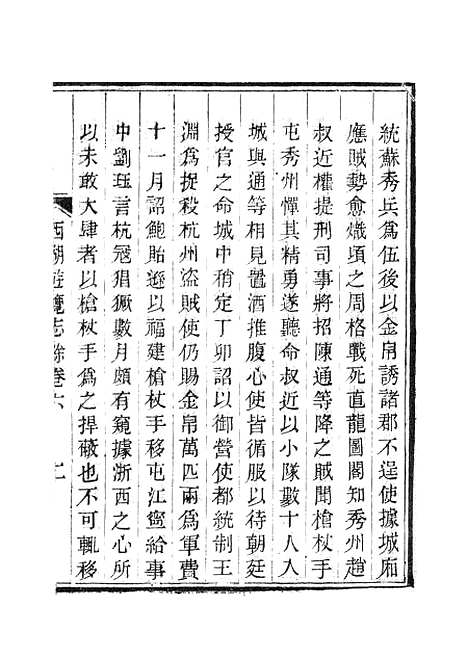 統蘇秀兵爲伍後以金帛誘諸郡不逞使據城廂
應賊勢愈熾頃之周格戰死直龍圖閣知秀州趙
叔近權提刑司事將招陳通等降之賊聞槍杖手
屯秀州憚其精勇遂聽命叔近以小隊數十人入
城與通等相見置酒推腹心使皆循服以待朝廷
授官之命城中稍定丁卯詔以御營使都統制王
淵爲捉殺杭州盜賊使仍賜金帛萬匹兩爲軍費
十一月詔鮑貽遜以福建槍杖手移屯江寧給事
中劉珏言杭寇猖獗數月頗有窺據浙西之心所
以未敢大肆者以槍杖手爲之捍蔽也不可輒移
西湖遊覽志餘卷六